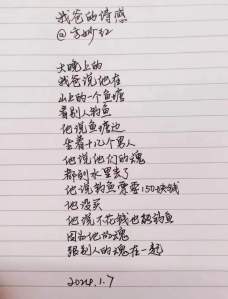 我爸的诗感
@方妙红
大晚上的
我爸说他在
山上的一个鱼塘
看别人钓鱼
他说鱼塘边
坐着十几个男人
他说他们的魂
都到水里去了
他说钓鱼需要150块钱
他没买
他说不花钱也能钓鱼
因为他的魂
跟别人的魂在一起
2024.1.7